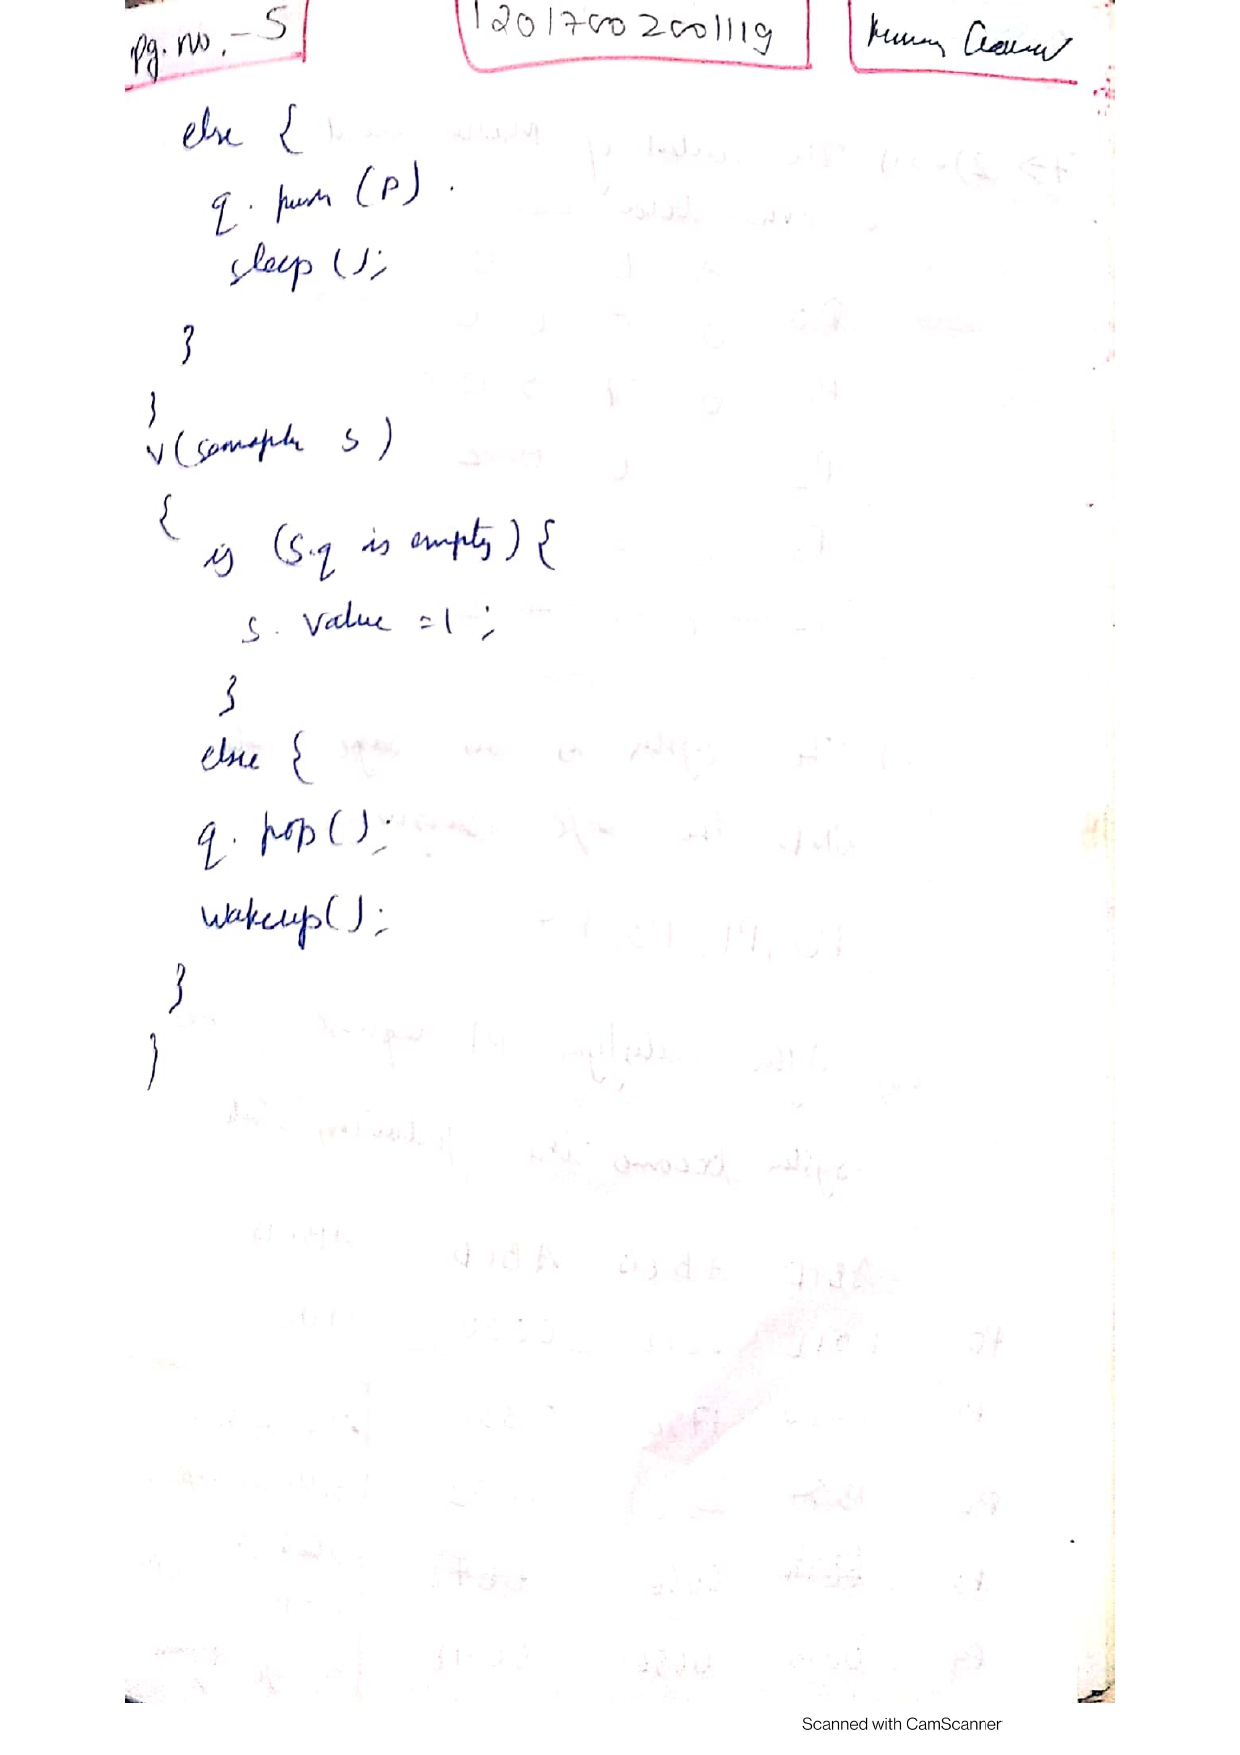 pg. no. - 5
12017002001119
else {
q. push (P) .
sleep ();
}
}
V (semaphore s)
{
if (s.q is empty) {
s. value = 1 ;
}
else {
q. pop ();
wakeup();
}
}
Scanned with CamScanner